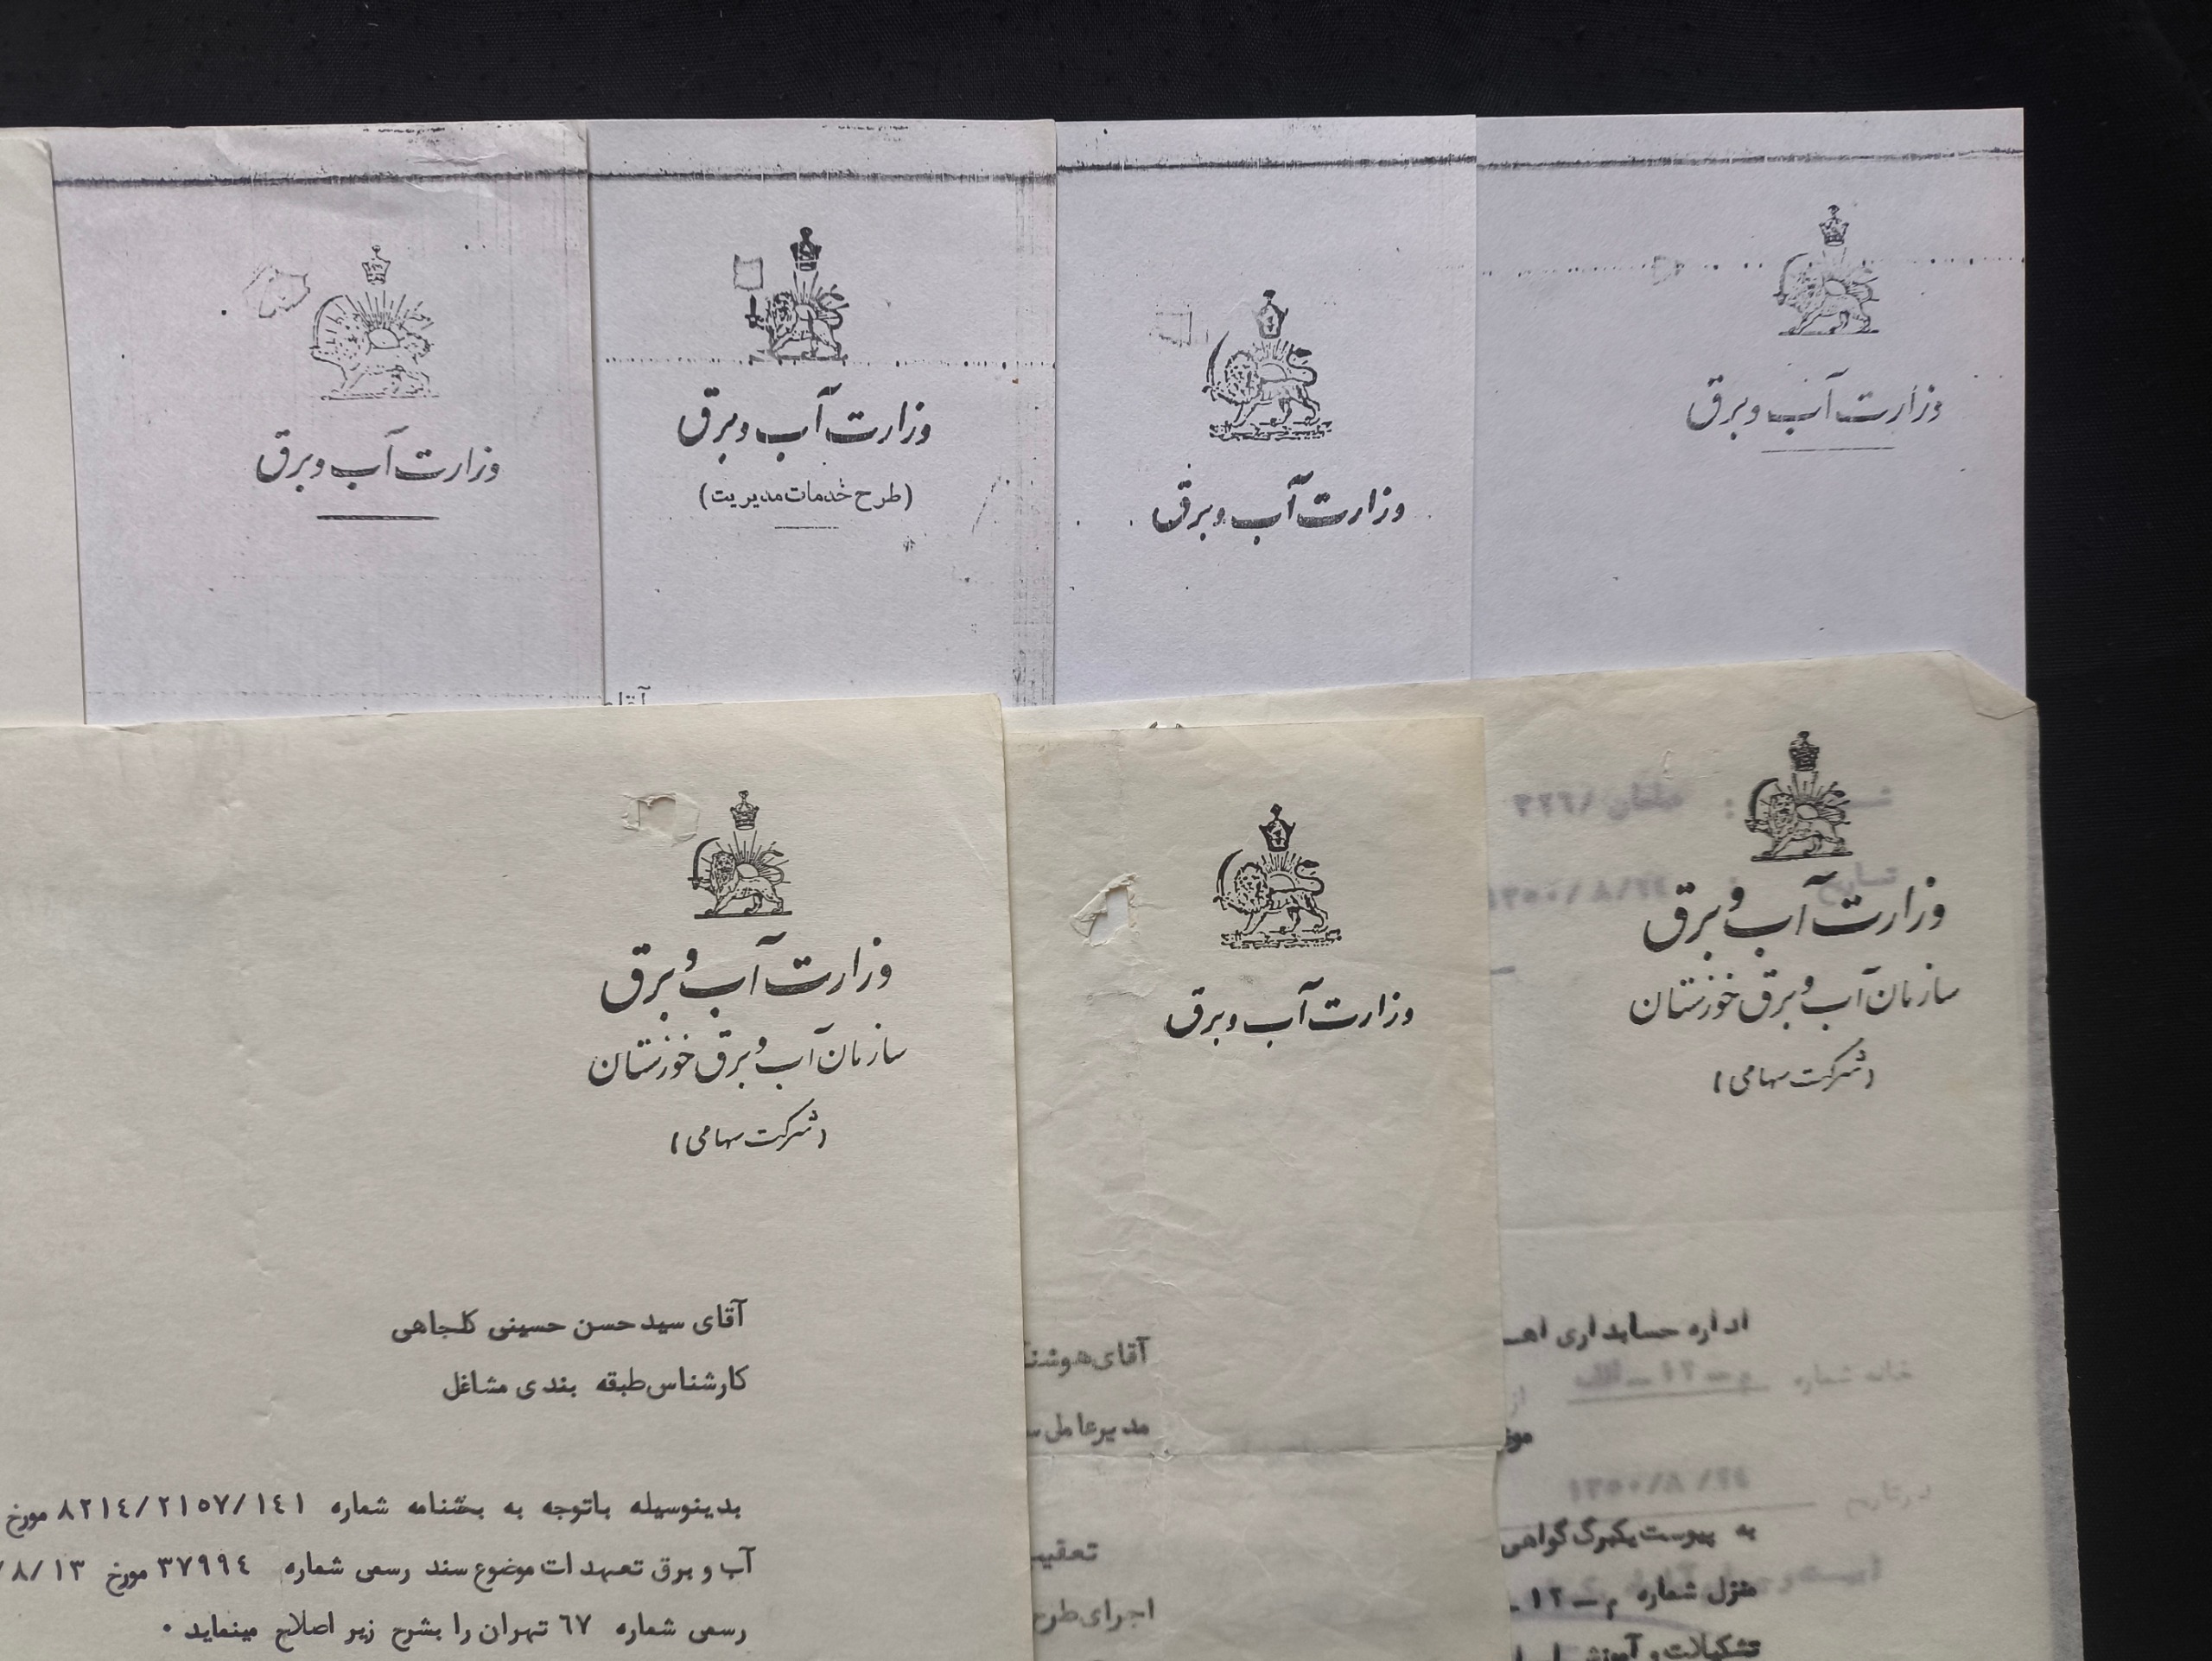 وزارت آب و برق
وزارت آب و برق
(طرح خدمات مدیریت)
وزارت آب و برق
وزارت آب و برق
آقا
وزارت آب و برق
سازمان آب و برق خوزستان
(شرکت سهامی)
آقای سید حسن حسینی کلجاهی
کارشناس طبقه بندی مشاغل
بدینوسیله باتوجه به بخشنامه شماره ۸۲۱٤/۲۱۵۷/۱٤۱ مورخ
آب و برق تعهدات موضوع سند رسمی شماره ۳۷۹۹٤ مورخ ۸/۱۳/
رسمی شماره ٦۷ تهران را بشرح زیر اصلاح مینماید ۰
وزارت آب و برق
آقای هوشنـ
مدیرعامل سـ
تعقیب
اجرای طرح
وزارت آب و برق
سازمان آب و برق خوزستان
(شرکت سهامی)
اداره حسابداری اهـ
مورخ
به پیوست یکبرگ گواهی
منزل شماره م ـ ۱۲ ـ
تشکیلات و آموزش